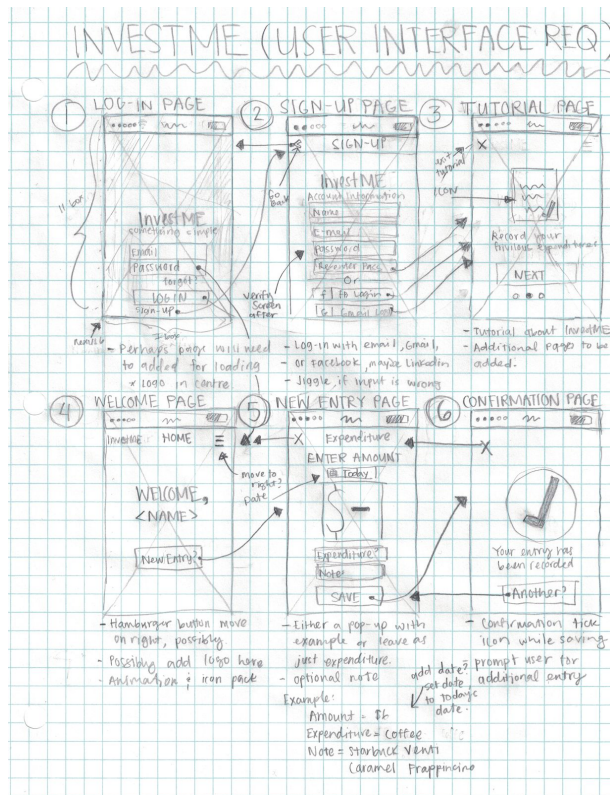 INVESTME (USER INTERFACE REQ)
1 LOG-IN PAGE
11 box
InvestME
something simple
Email
Password
forgot?
LOG IN
sign-up
7 box
- Perhaps page will need
to added for loading
* logo in centre
2 SIGN-UP PAGE
SIGN-UP
Go
Back
InvestME
Account Information
Name
E-mail
Password
Or
f | Fb Login
G |
verify
screen
after
- Log-in with email, Gmail,
- or Facebook, maybe Linkedin
- Jiggle, if input is wrong
3 TUTORIAL PAGE
exit
tutorial
X
ICON
Record your
frivilous expenditures
NEXT
- Tutorial about InvestME
- Additional pages to be
added.
4 WELCOME PAGE
InvestME HOME
move to
right?
WELCOME,
<NAME>
New Entry?
- Hamburger button move
on right, possibly.
- Possibly add logo here
- Animation & icon pack
5 NEW ENTRY PAGE
X Expenditure
ENTER AMOUNT
Today
Date
$ -
Expenditure?
Note:
SAVE
- Either a pop-up with
example or leave as
just expenditure.
- optional note
add date?
set date
to today's
date.
Example:
Amount = $6
Expenditure = Coffee
Note = Starbuck Venti
Caramel Frappincino
6 CONFIRMATION PAGE
X
Your entry has
been recorded
Another?
- Confirmation tick
icon while saving
- prompt user for
additional entry